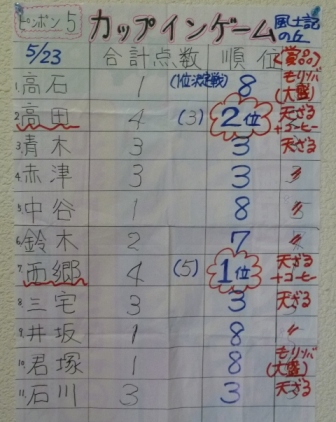 ピンポン5 カップインゲーム 風土記の丘
5/23 合計点数 (1位決定戦) 順位 (賞品)
1. 高石 1 8 もりソバ(大盛)
2. 高田 4 (3) 2位 天ざる+コーヒー
3. 青木 3 3 天ざる
4. 赤津 3 3 〃
5. 中谷 1 8 〃
6. 鈴木 2 7 〃
7. 西郷 4 (5) 1位 天ざる+コーヒー
8. 三宅 3 3 天ざる
9. 井坂 1 8 〃
10. 君塚 1 8 もりソバ(大盛)
11. 石川 3 3 天ざる